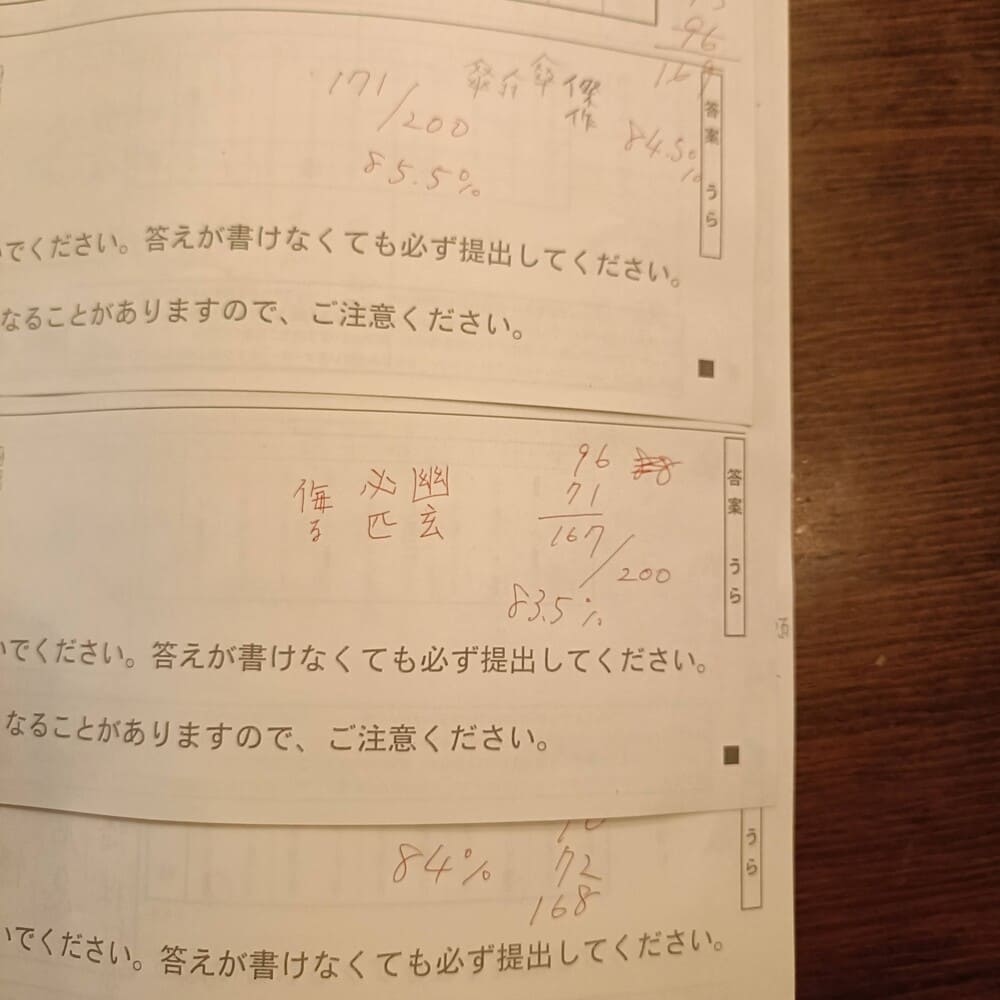 96
171/200
傘 傑作
84.5%
85.5%
答案 うら
でください。答えが書けなくても必ず提出してください。
なることがありますので、ご注意ください。
96
71
167/200
幽玄
必匹
侮る
83.5%
答案 うら
でください。答えが書けなくても必ず提出してください。
なることがありますので、ご注意ください。
84%
72
168
うら
いでください。答えが書けなくても必ず提出してください。